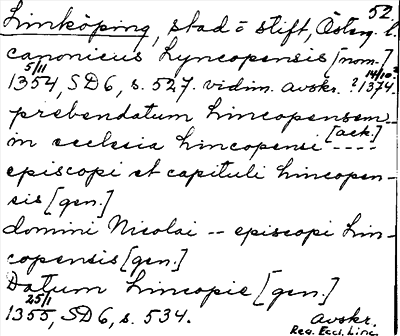 52.
Linköping, stad o stift, Österg. l.
canonicus Lyncopensis [nom.]
5/11 14/10
1354, SD6, s. 527. vidim. avskr. ? 1374.
prebendatum Lincopensem
in ecclesia Lincopensi [ack.] ----
episcopi et capituli Lincopen-
sis [gen.]
domini Nicolai -- episcopi Lin-
copensis [gen.]
Datum Lincopie [gen.]
25/1
1355, SD6, s. 534. Avskr.
Reg. Eccl. Linc.